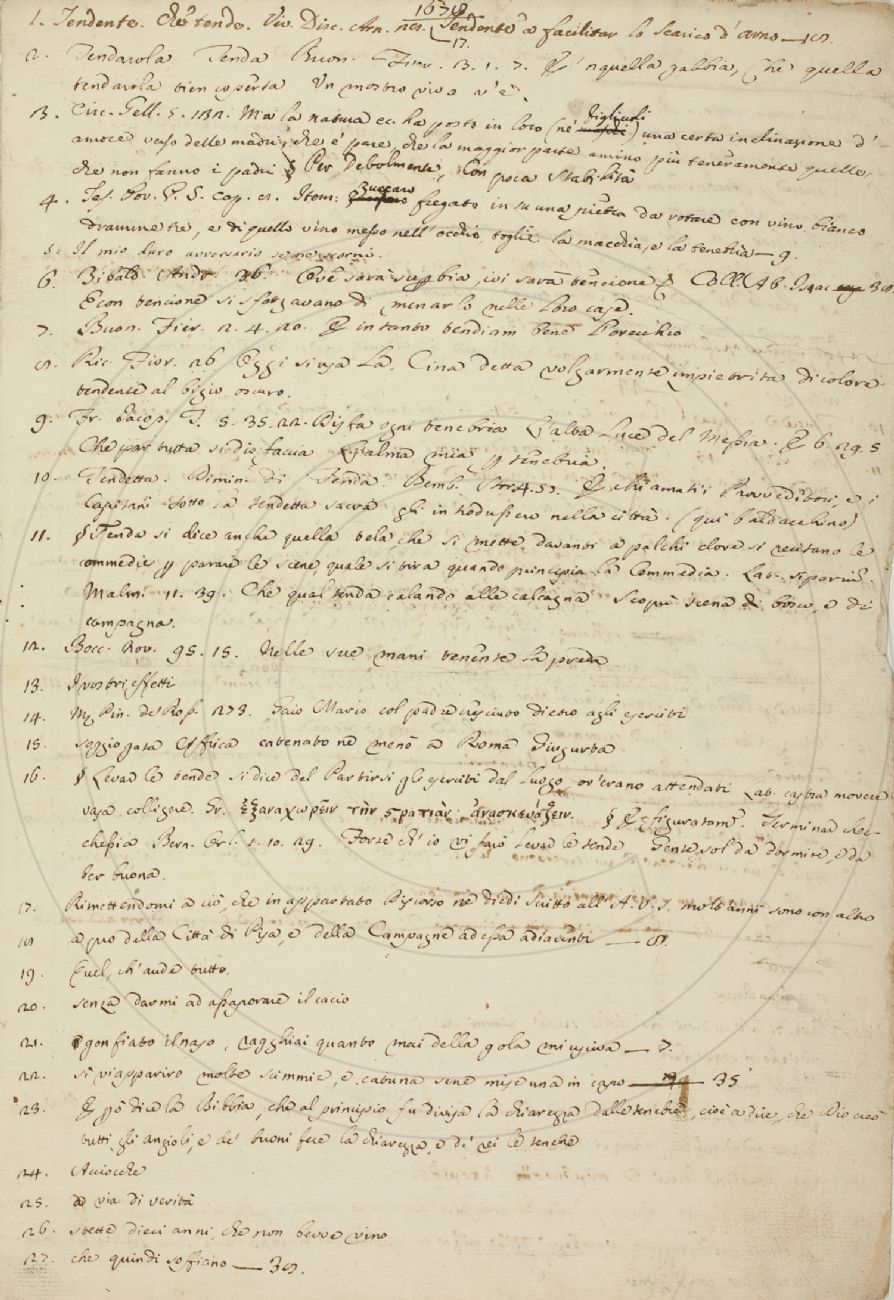 1679
1. Tendente. Che tende. Viv. Disc. Arn. Tendente a facilitar lo scarico d'Arno — 18.
17.
2. Tendarola Tenda Buon. Fier. 3. 1. 7. E 'n quella gabbia, che quella
tendarola tien coperta Un mostro vivo v'è.
3. Circ. Gell. 5. 132. Ma la natura ec. ha posto in loro (ne' figliuoli) una certa inclinazione d'
amore verso delle madri, che è pare, che la maggior parte amino più teneramente quelle,
che non fanno i padri § Per Debolmente, Con poca stabilità
4. Tes. Pov. P. S. cap. Item: Zuccaro fregato in su una pietra da rotare con vino bianco
dramme tre, e di quello vino messo nell'occhio, toglie la macchia, e la tenebria — 9.
5. Il mio duro avversario se ne scorni.
6. Tibald. Andr. 36. Ov'è sarà superbia, ivi sarà tencione E Coll. Ab. Isaac 38.
E con tencione si sforzavano di menarlo nelle loro case.
7. Buon. Fier. 2. 4. 20. E intanto tendiam bene l'orecchio
8. Ric. Fior. 26 Oggi si usa la Cina detta volgarmente impietrita di colore
tendente al bigio oscuro.
9. Fr. Jacop. T. 5. 35. 22. Disfa ogni tenebria L'alba luce del Messia. E 6. 29. 5
Che par tutta si disfaccia L'alma mia per tenebria.
10. Tendetta. Dimin. di Tenda Bemb. Stor. 4. 51. E chiamati i Provveditori, e i
Capitani sotto la tendetta sacra gli introdussero nella città. (qui baldacchino)
11. § Tenda si dice anche quella tela, che si mette davanti a palchi dove si recitano le
commedie per parare le scene, quale si tira quando principia la Commedia. Lat. siparium.
Malm. 11. 39. Che qual tenda calando alle calcagna Scoprì scena di bosco, e di
campagna.
12. Bocc. Nov. 95. 15. Nelle sue mani tenente la preda
13. I vostri effetti
14. M. Pin. de Ross. 273. Gaio Mario col padre cresciuto dietro agli eserciti
15. soggiogata Affrica catenato ne menò a Roma Giugurta
16. § Levar le tende si dice del Partirsi gli eserciti dal luogo, ov'erano attendati Lat. castra movere
vasa colligere. Gr. ἐξαναχωρεῖν τὴν στρατιὰν, ἀνασκευάζειν. § E figuratam. Terminar che
chessia Bern. Orl. 1. 10. 29. Forse ch'io vi farò levar le tende Gente sol da dormire, e da
ber buona.
17. Rimettendomi a ciò, che in appartato Discorso ne diedi scritto all'A.V.S. molti anni sono con altro
18 a pro della Città di Pisa, e della Campagne ad essa adiacenti — 8.
19. Quel, ch'aude tutto.
20. senza darmi ad assaporare il cacio
21. gonfiato il naso, ragghiai quanto mai della gola mi usciva — 7.
22. si vi appariro molte scimmie, e catuna se ne mise una in capo — 35
23. E però dice la Bibbia, che al principio fu divisa la chiarezza dalle tenebre, cioè a dire, che Dio creò
tutti gli angioli, e de' buoni fece la chiarezza, e di' rei le tenebre
24. Acciocchè
25. a via di verità
26. stette dieci anni, che non bevve vino
27. che quindi soffiano — 38.